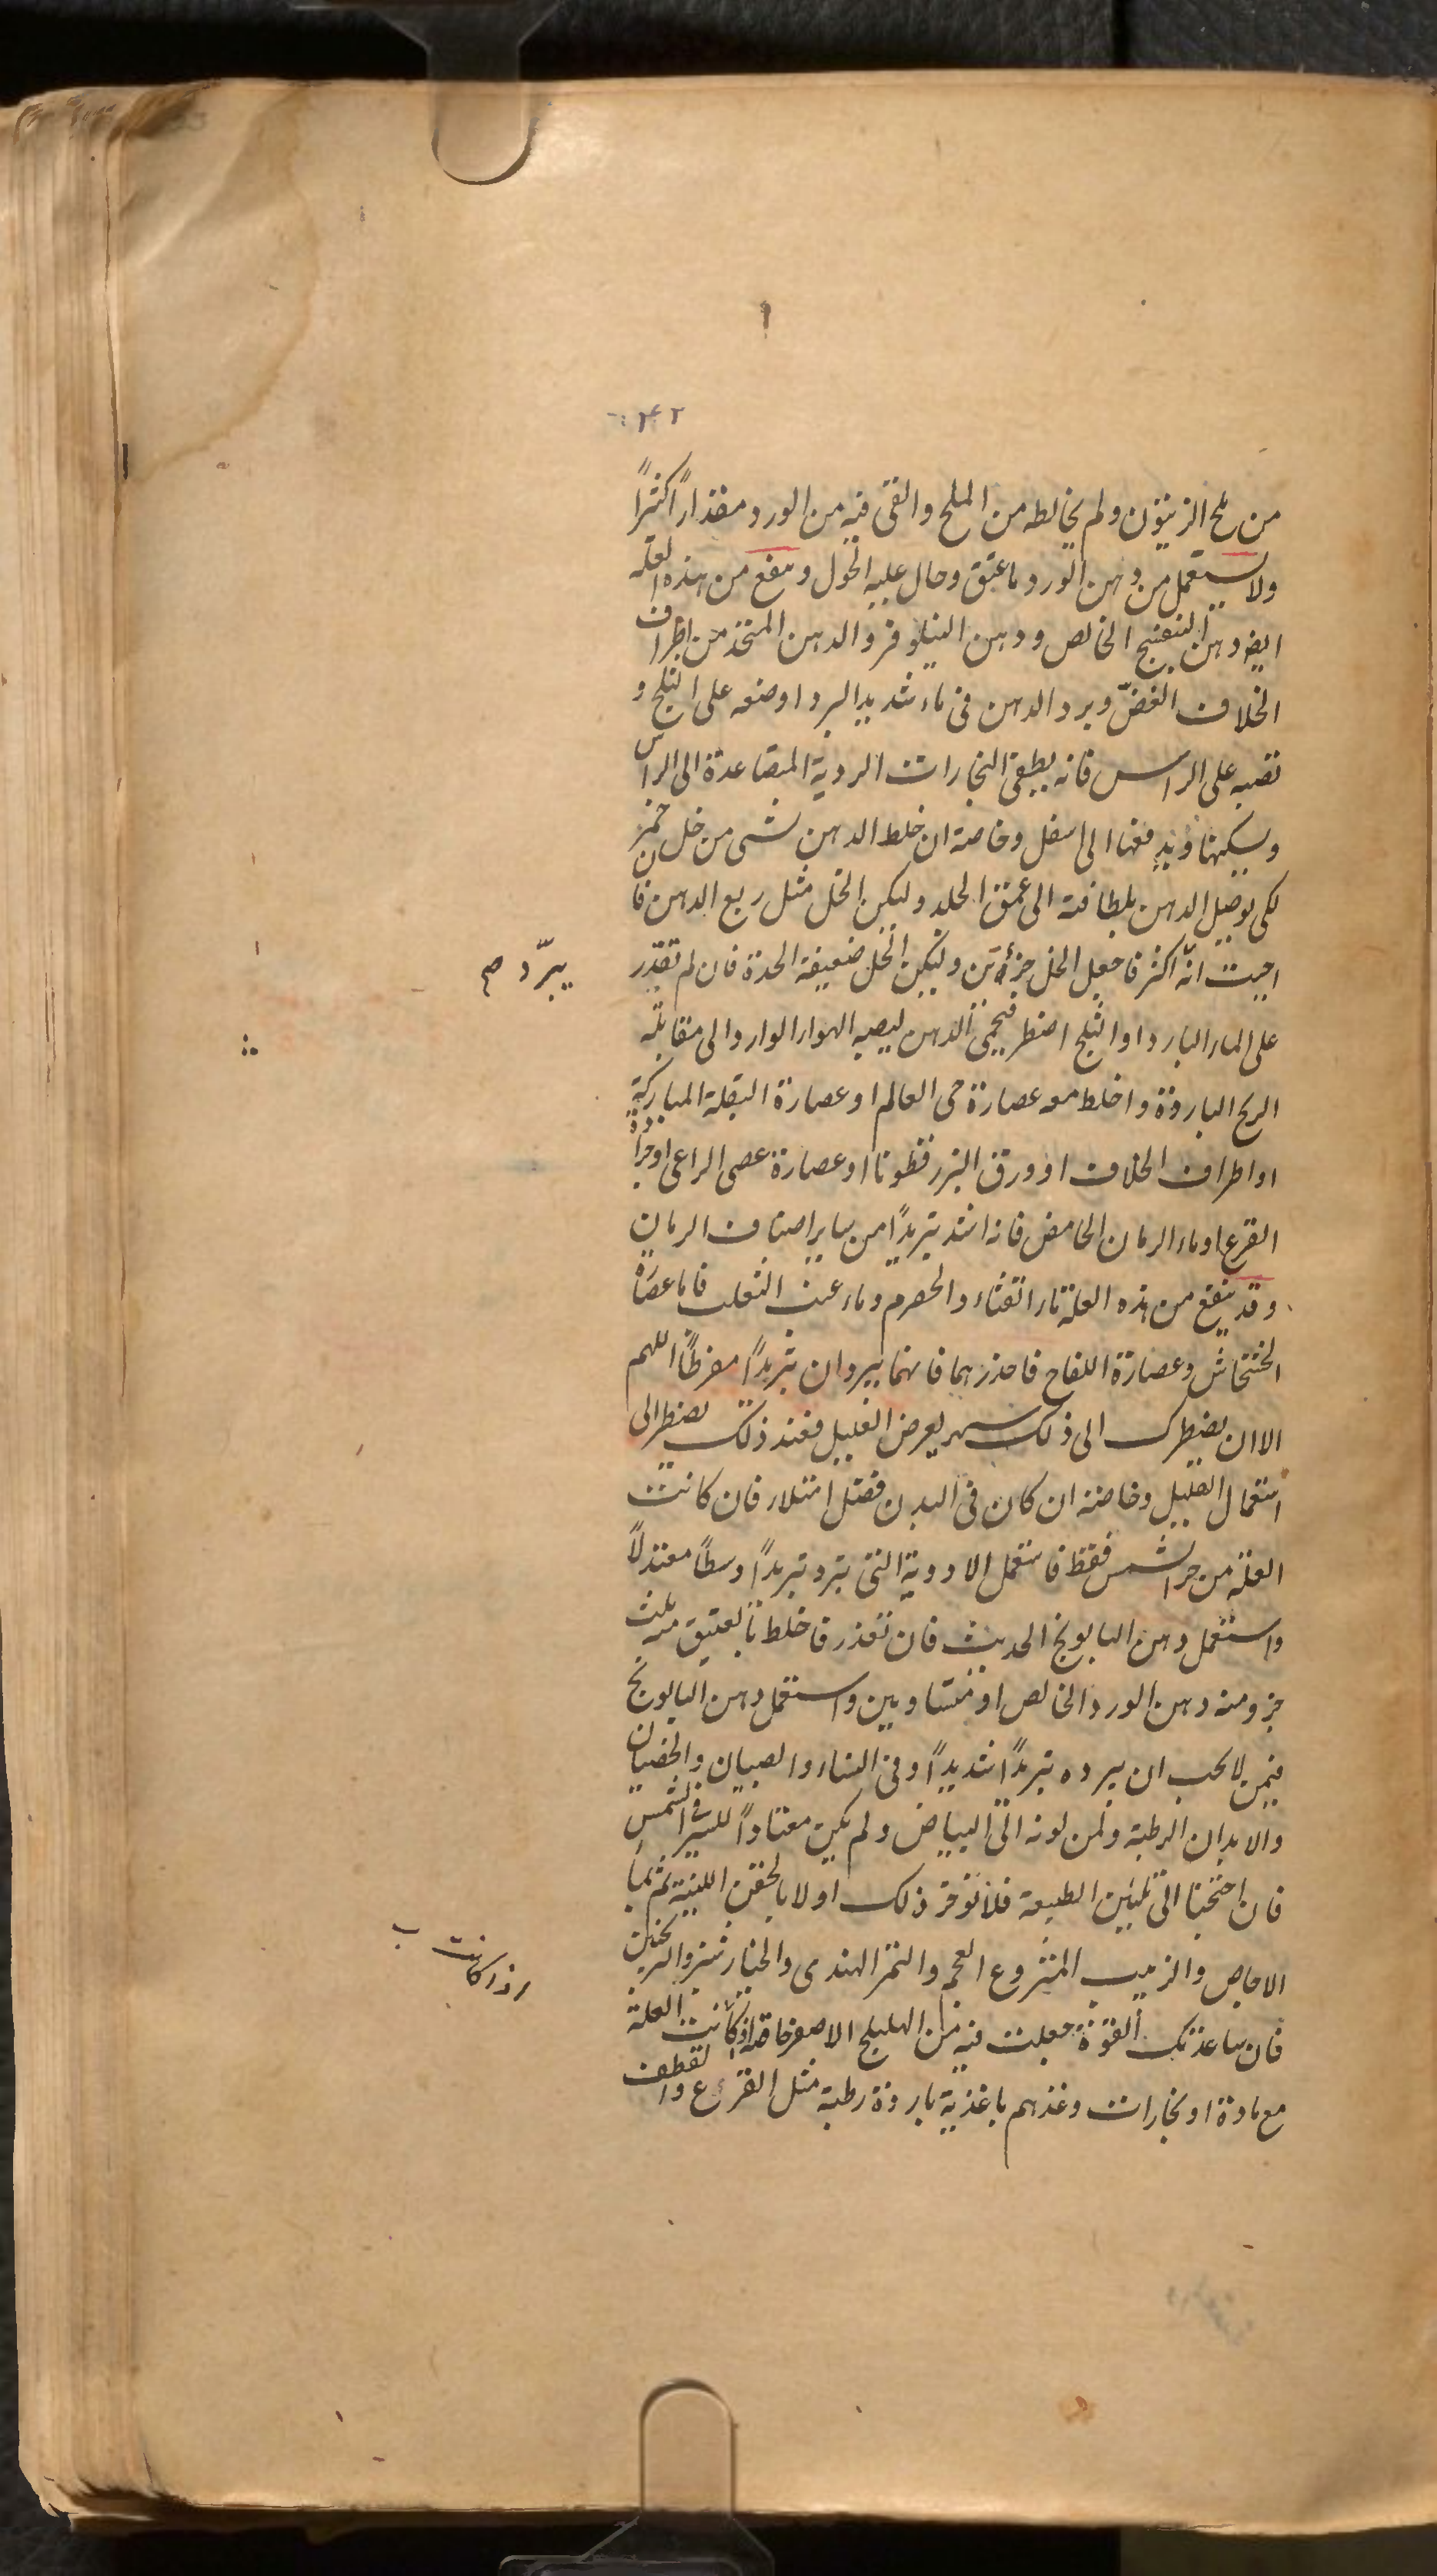 ٢٤٢
من ملح الزيتون ولم يخالطه من الملح والقى فيه من الورد مقداراً كثيراً
ولا يستعمل من دهن الورد ما عتق وحال عليه الحول وينفع من هذه العلة
ايضا دهن البنفسج الخالص ودهن النيلوفر والدهن المتخذ من اطراف
الخلاف الغضّ ويرد الدهن فى ماء شديد البرد او ضعه على الثلج و
تصبه على الراس فانه يطفى البخارات الردية المتصاعدة الى الراس
ويسكنها ويدفعها الى اسفل وخاصة ان خلط الدهن بشى من خل خمر
لكى يوصل الدهن بلطافته الى عمق الجلد وليكن الخل مثل ربع الدهن فان
احببت انّه اكثر فاجعل الخل جزأين وليكن الخل ضعيفة الحدة فان لم تقدر
على الماء البارد او الثلج اضطر فيحمى الدهن ليصبه الهواء الوارد الى مقابلة
الريح الباردة واخلط معه عصارة حى العالم او عصارة البقلة المباركة
او اطراف الخلاف او ورق البزرقطونا او عصارة عصى الراعى او جرادة
القرع او ماء الرمان الحامض فانه اشد تبريداً من ساير اصناف الرمان
وقد ينفع من هذه العلة ماء القثاء والحصرم وماء عنب الثعلب فاما عصارة
الخشخاش وعصارة اللفاح فاحذرهما فانهما يبردان تبريداً مفرطاً اللهم
الا ان يضطرك الى ذلك سهر يعرض العليل فعند ذلك تضطر الى
استعمال القليل وخاصة ان كان فى البدن فضل امتلاء فان كانت
العلة من حر الشمس فقط فاستعمل الادوية التى تبرد تبريداً وسطاً معتدلاً
واستعمل دهن البابونج الحديث فان تعذر فاخلط بالعتيق منه ثلث
جزو منه دهن الورد الخالص او متساويين واستعمل دهن البابونج
فيمن لا يحب ان يبرده تبريداً شديداً وفى النساء والصبيان والخصيان
والابدان الرطبة ولمن لونه الى البياض ولم يكن معتاداً للسير فى الشمس
فان احتجنا الى تليين الطبيعة فلا تؤخر ذلك اولا بالحقن اللينة ثم بماء
الاجاص والزبيب المنزوع العجم والتمر الهندى والخيارشنبر والترنجبين
فان ساعدتك القوة جعلت فيه من الهليلج الاصفر خاصة اذا كانت العلة
مع مادة او بخارات وغذهم باغذية باردة رطبة مثل القرع والقطف
يبرّد م
اذا كانت ب